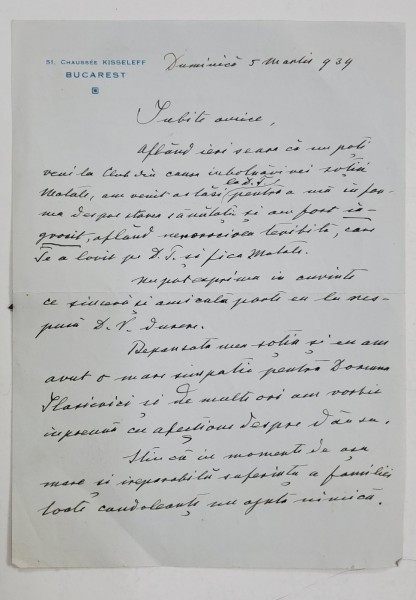 51. CHAUSSÉE KISSELEFF
BUCAREST
Duminică 5 Martie 939
Iubite amice,
Aflând ieri seare că nu poți
veni la Club din cauza imbolnăvirei soției
Matale, am venit astăzi la D.T. pentru a mă infor-
ma despre starea sănătății și am fost în-
grozit, aflând nenorocirea teribilă, care
Te a lovit pe D.T. și fica Matale.
Nu pot exprima in cuvinte
ce sinceră și amicală parte eu la
D. V. durere.
mea soție și eu am
avut o mare simpatie pentru Doamna
și de multe ori am vorbit
inpreună cu afecțiune despre dânsa.
Știu că in momente de așa
mare și ireparabilă suferința a familiei
toate condoleanțe nu ajută nimică.